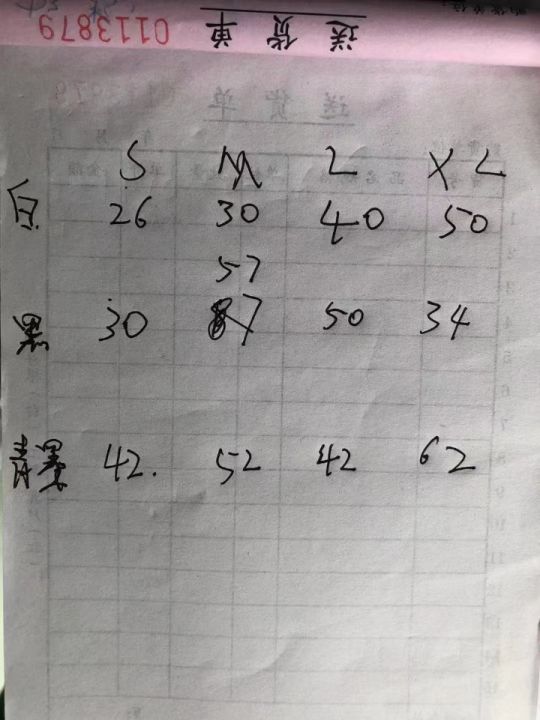 送货单 0113879
送货单
S M L XL
白 26 30 40 50
57
黑 30 50 34
42. 52 42 62